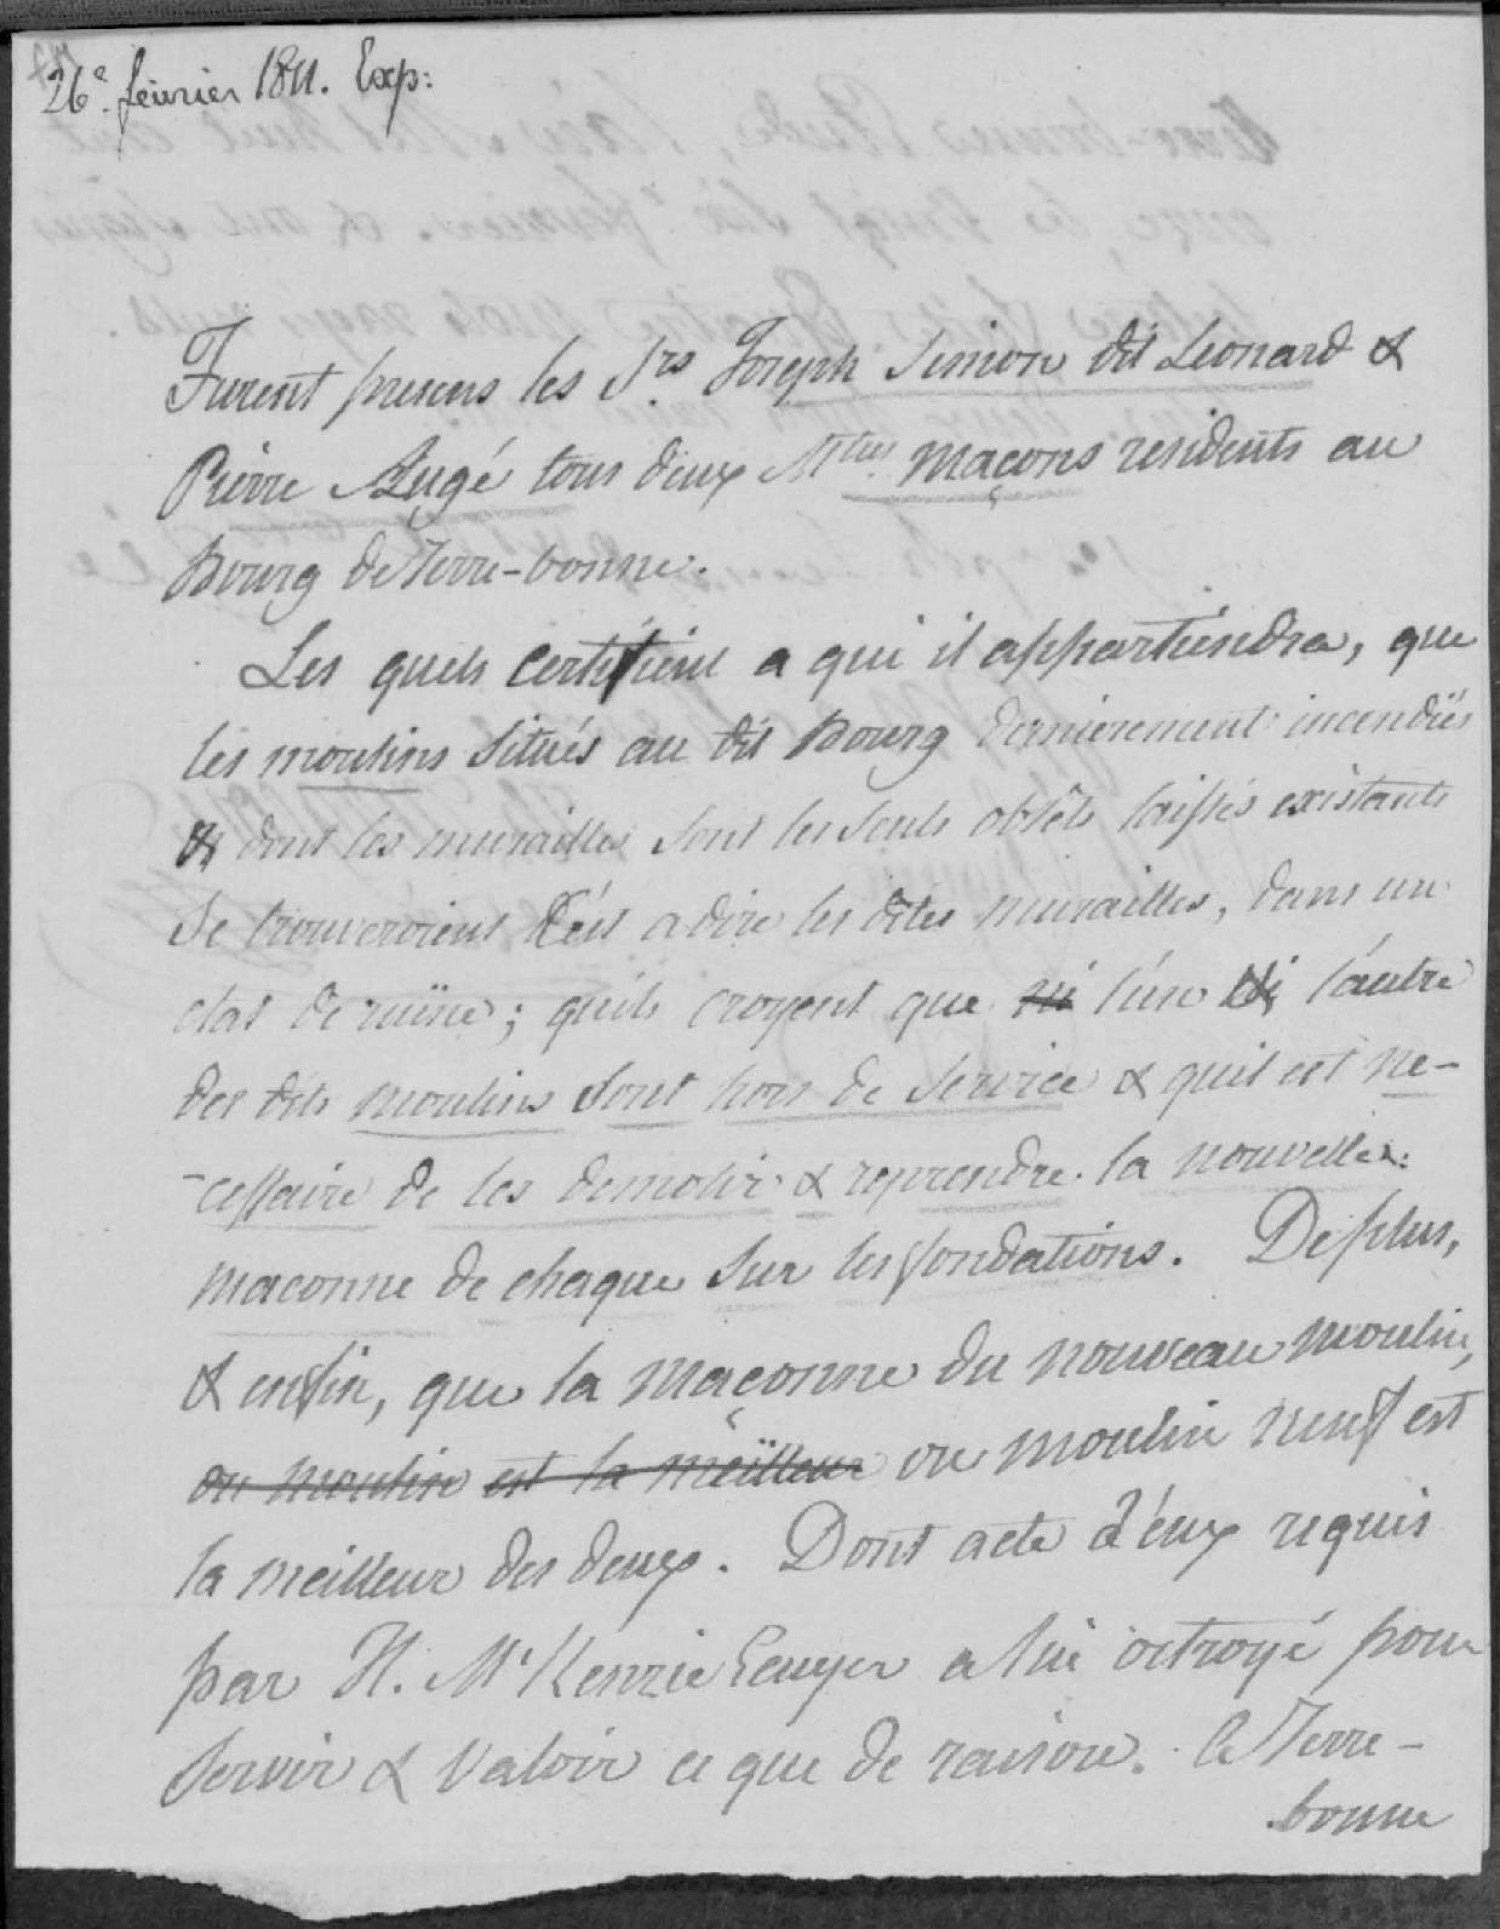 26e. fevrier 1811. Exp:
Furent presens les Srs. Joseph Simon dit Leonard &
Pierre Augé tous deux Mtres maçons residents au
Bourg de Terre-bonne.
Les quels certifient a qui il appartiendra, que
les moulins situés au dit Bourg dernierement incendiés
& dont les murailles sont les seuls objêts laissés existants
se trouveroient C'est a dire les dites murailles, dans un
etat de ruine; qu'ils croyent que ni l'un & l'autre
des dits moulins sont hors de service & quil est ne-
-cessaire de les demolir & reprendre la nouvelle
maconne de chaque sur les fondations. De plus,
& enfin, que la maçonne du nouveau moulin,
ou moulin est la meilleur ou moulin neuf est
la meilleur des deux. Dont acte d'eux requis
par H. McKenzie Ecuyer a lui octroyé pour
servir & valoir ce que de raison. a Terre-
bonne